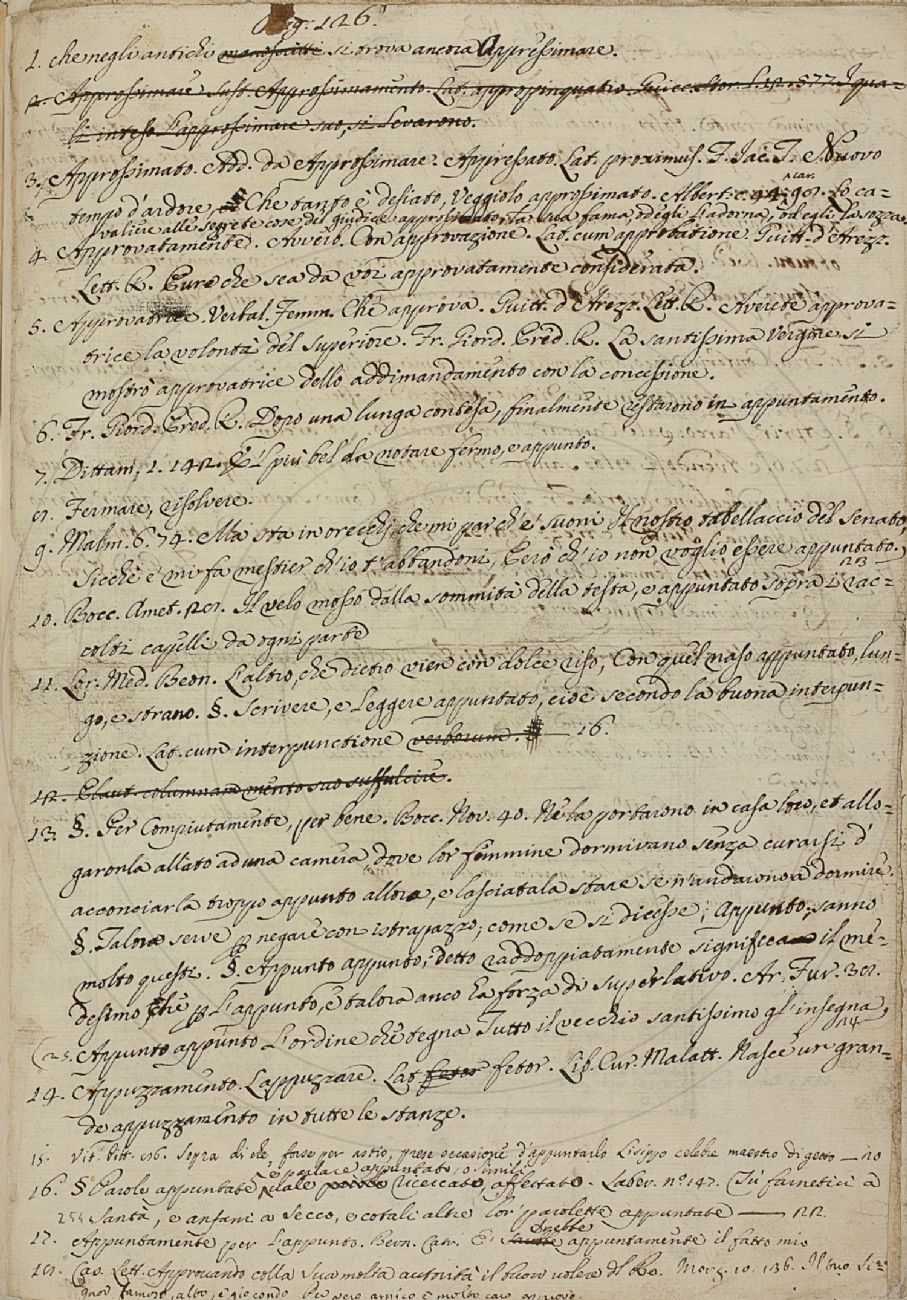 Pag. 126.
1. che negli antichi manoscritti si trova ancora Appressimare.
2. Approssimare Sust. Approssimamento. Lat. appropinquatio. Guicc. Stor. l. 12. 577. I qua=
li inteso l'approssimare suo, si levarono.
3. Approssimato. Add. da Approssimare. Appressato. Lat. proximus. F. Jac. T. Nuovo
tempo d'ardore, Che tanto è desiato, Veggiolo approssimato. Albert. c. Lo ca=
valiere alle segrete cose del giudice approssimato, la sua fama, od egli l'adorna, od egli la sozza.
4. Approvatamente. Avverb. Con approvazione. Lat. cum approbatione. Guitt. d'Arezz.
Lett. R. Cura che sea da voi approvatamente considerata.
5. Approvatrice. Verbal. Femm. Che approva. Guitt. d'Arezz. Lett. R. Averete approva=
trice la volontà del Superiore. Fr. Giord. Pred. R. La santissima Vergine si
mostrò approvatrice dello addimandamento con la concessione.
6. Fr. Giord. Pred. R. Dopo una lunga contesa, finalmente restarono in appuntamento.
7. Dittam. 1. E'l più bel da notare fermo, e appunto.
8. Fermare, risolvere.
9. Malm. 6. 74. Ma sta in orecchj, che mi par ch'e' suoni Il nostro tabellaccio del Senato,
Sicchè e' mi fa mestier ch'io t'abbandoni, Però ch'io non voglio essere appuntato.
10. Bocc. Amet. Il velo mosso dalla sommità della testa, e appuntato sopra i rac=
colti capelli da ogni parte
11. Lor. Med. Beon. L'altro, che dietro vien con dolce riso, Con quel naso appuntato, lun=
go, e strano. §. Scrivere, e Leggere appuntato, cioè secondo la buona interpun=
zione. Lat. cum interpunctione verborum. 16.
12. Plaut. columnam mento suo suffulcire.
13. §. Per Compiutamente, per bene. Bocc. Nov. 40. Ne la portarono in casa loro, et allo=
garonla allato ad una camera, dove lor femmine dormivano senza curarsi d'
acconciarla troppo appunto allora, e lasciatala stare se n'andarono a dormire.
§. Talora serve p negare con istrapazzo, come se si dicesse; Appunto, sanno
molto questi. §. Appunto appunto, detto raddoppiatamente significa il me=
desimo, che p L'appunto, e talora anco ha forza di superlativo. Ar. Fur.
Appunto appunto L'ordine che tegna Tutto il vecchio santissimo gl'insegna,
14. Appuzzamento. L'appuzzare. Lat. fetor fetor. Lib. Cur. Malatt. Nasce un gran=
de appuzzamento in tutte le stanze.
15. Vit. Pitt. Sopra di che forse per astio, prese occasione d'appuntarlo Lisippo celebre maestro di getto
o parlare appuntato, o simili
16. § Parole appuntate vale parole ricercato, affettato. Laber. n.º 147. Tu farnetici a
santà, e anfani a secco, e cotali altre lor parolette appuntate
17. Appuntamente per L'appunto. Bern. Catr. E' sarebbe appuntamente il fatto mio
18. Car. Lett. Approvando colla sua molta autorità il buon volere del Re. Morg. 10. 136. Il tuo Si=
gnor famoso, alto, e giocondo Per vero amico e molto caro approvo.